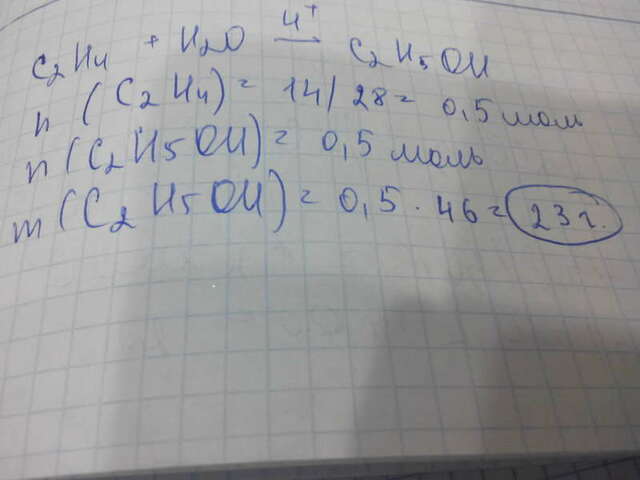 C₂H₄ + H₂O $\xrightarrow{H^+}$ C₂H₅OH
n (C₂H₄) = 14/28 = 0,5 моль
n (C₂H₅OH) = 0,5 моль
m (C₂H₅OH) = 0,5 · 46 = 23 г.